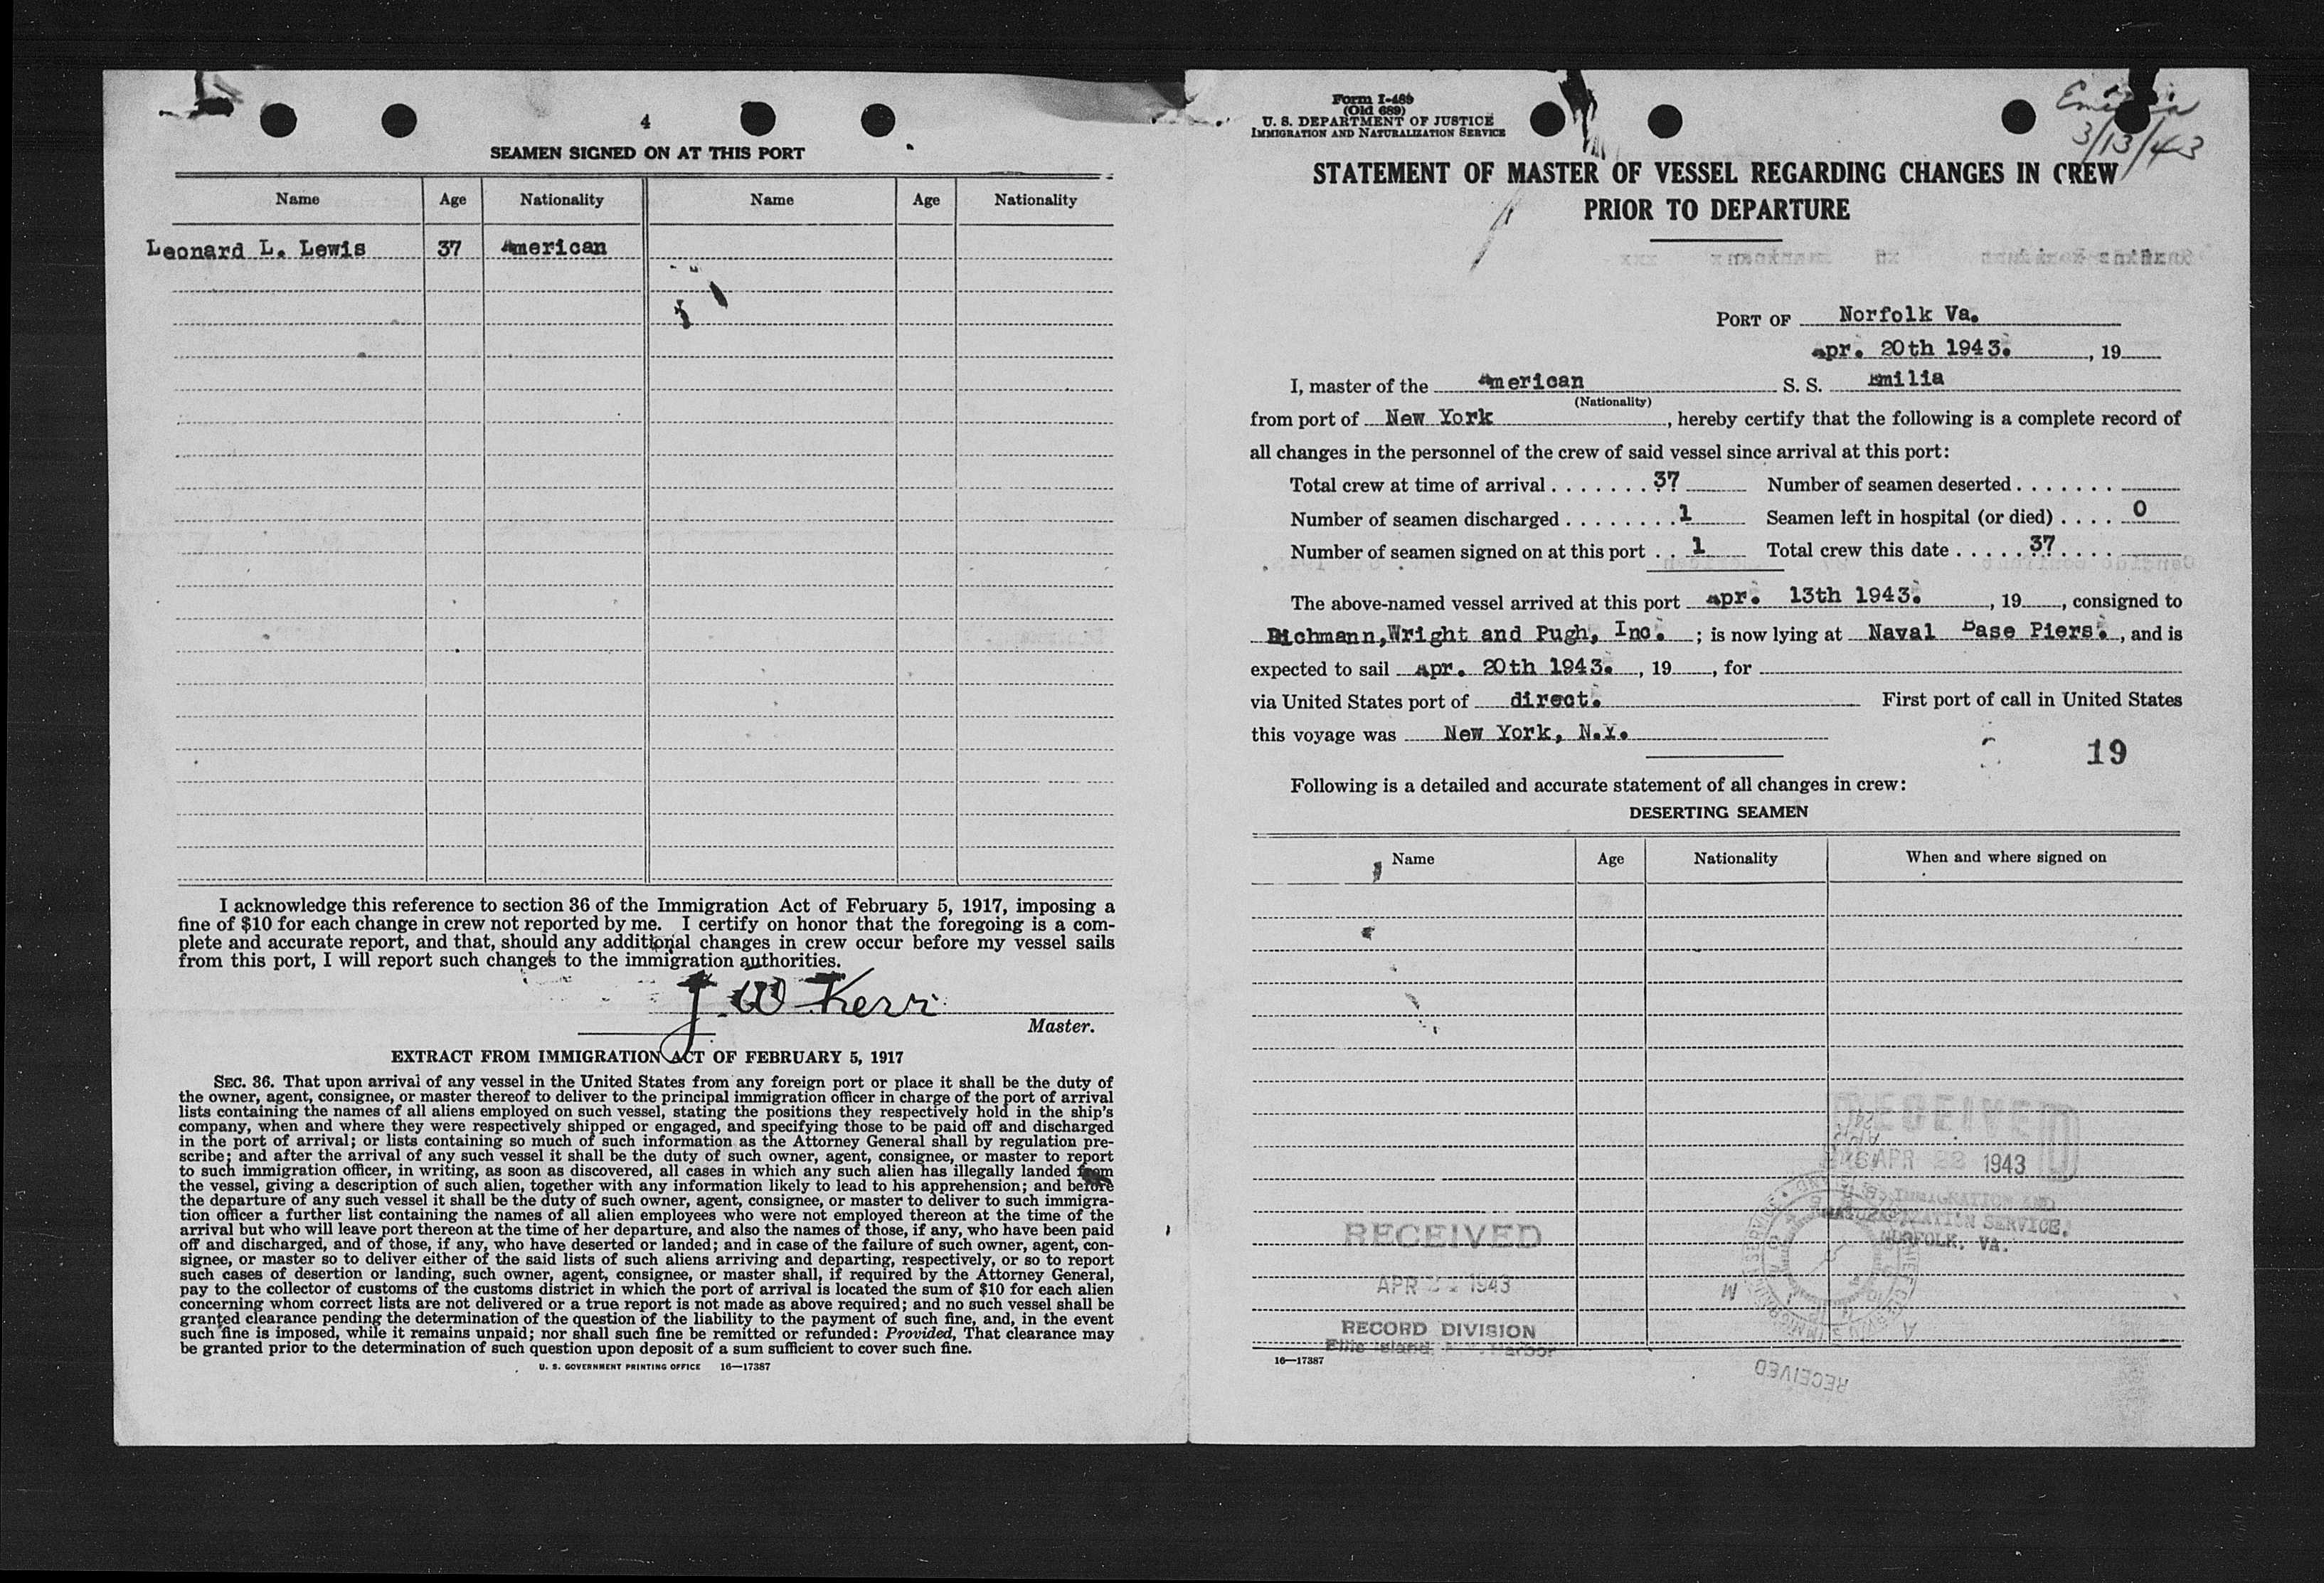 4
SEAMEN SIGNED ON AT THIS PORT
Name Age Nationality Name Age Nationality
Leonard L. Lewis 37 American
I acknowledge this reference to section 36 of the Immigration Act of February 5, 1917, imposing a
fine of $10 for each change in crew not reported by me. I certify on honor that the foregoing is a com-
plete and accurate report, and that, should any additional changes in crew occur before my vessel sails
from this port, I will report such changes to the immigration authorities.
J. W Kerr
Master.
EXTRACT FROM IMMIGRATION ACT OF FEBRUARY 5, 1917
SEC. 36. That upon arrival of any vessel in the United States from any foreign port or place it shall be the duty of
the owner, agent, consignee, or master thereof to deliver to the principal immigration officer in charge of the port of arrival
lists containing the names of all aliens employed on such vessel, stating the positions they respectively hold in the ship's
company, when and where they were respectively shipped or engaged, and specifying those to be paid off and discharged
in the port of arrival; or lists containing so much of such information as the Attorney General shall by regulation pre-
scribe; and after the arrival of any such vessel it shall be the duty of such owner, agent, consignee, or master to report
to such immigration officer, in writing, as soon as discovered, all cases in which any such alien has illegally landed from
the vessel, giving a description of such alien, together with any information likely to lead to his apprehension; and before
the departure of any such vessel it shall be the duty of such owner, agent, consignee, or master to deliver to such immigra-
tion officer a further list containing the names of all alien employees who were not employed thereon at the time of the
arrival but who will leave port thereon at the time of her departure, and also the names of those, if any, who have been paid
off and discharged, and of those, if any, who have deserted or landed; and in case of the failure of such owner, agent, con-
signee, or master so to deliver either of the said lists of such aliens arriving and departing, respectively, or so to report
such cases of desertion or landing, such owner, agent, consignee, or master shall, if required by the Attorney General,
pay to the collector of customs of the customs district in which the port of arrival is located the sum of $10 for each alien
concerning whom correct lists are not delivered or a true report is not made as above required; and no such vessel shall be
granted clearance pending the determination of the question of the liability to the payment of such fine, and, in the event
such fine is imposed, while it remains unpaid; nor shall such fine be remitted or refunded: Provided, That clearance may
be granted prior to the determination of such question upon deposit of a sum sufficient to cover such fine.
U. S. GOVERNMENT PRINTING OFFICE 16—17387
Form I-489
(Old 689)
U. S. DEPARTMENT OF JUSTICE
IMMIGRATION AND NATURALIZATION SERVICE
Emilia
3/13/43
STATEMENT OF MASTER OF VESSEL REGARDING CHANGES IN CREW
PRIOR TO DEPARTURE
PORT OF Norfolk Va.
Apr. 20th 1943. , 19
I, master of the American S. S. Emilia
(Nationality)
from port of New York , hereby certify that the following is a complete record of
all changes in the personnel of the crew of said vessel since arrival at this port:
Total crew at time of arrival . . . . . . . 37 Number of seamen deserted . . . . . . .
Number of seamen discharged . . . . . . . . 1 Seamen left in hospital (or died) . . . . 0
Number of seamen signed on at this port . . 1 Total crew this date . . . . . 37 . . . .
The above-named vessel arrived at this port Apr. 13th 1943. , 19 , consigned to
Bichmann, Wright and Pugh, Inc. ; is now lying at Naval Base Piers. , and is
expected to sail Apr. 20th 1943. , 19 , for
via United States port of direct. First port of call in United States
this voyage was New York, N.Y.
19
Following is a detailed and accurate statement of all changes in crew:
DESERTING SEAMEN
Name Age Nationality When and where signed on
RECEIVED
APR 1943
IMMIGRATION AND
NATURALIZATION SERVICE.
NORFOLK, VA.
RECEIVED
APR 1943
RECORD DIVISION
Ellis Island, N. Y. Harbor
16—17387
RECEIVED